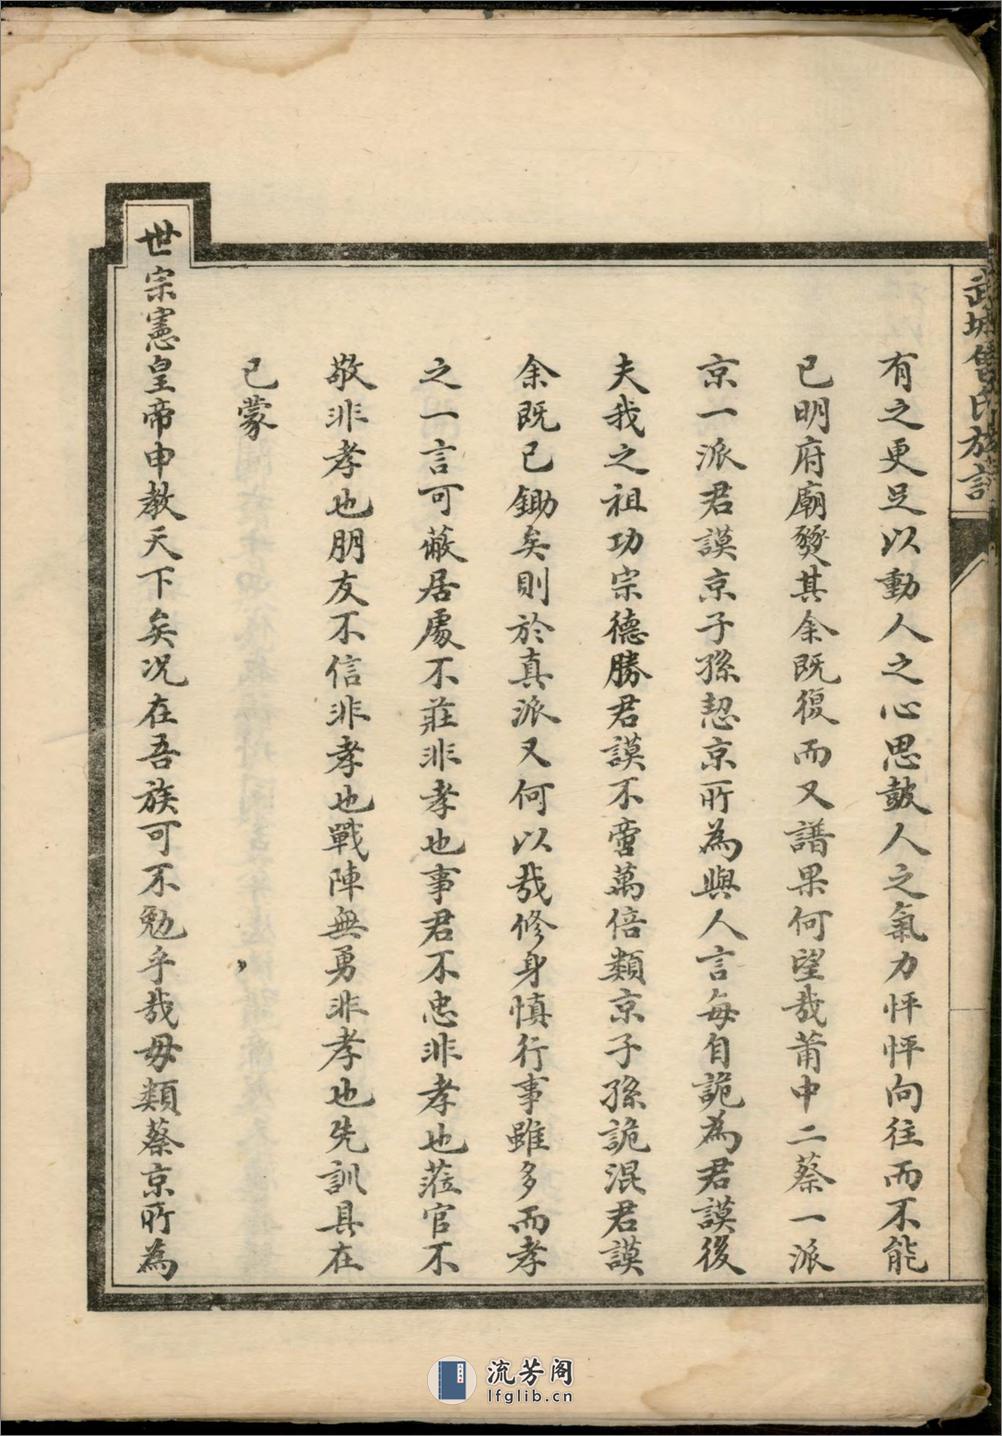 武城曾氏族譜
有之更足以動人之心思鼓人之氣力怦怦向往而不能
已明府廟燹其余既復而又譜果何望哉莆中二蔡一派
京一派君謨京子孫恝京所為與人言每自詭為君謨後
夫我之祖功宗德勝君謨不啻萬倍類京子孫詭混君謨
余既已鋤矣則於真派又何以哉修身慎行事雖多而孝
之一言可蔽居處不莊非孝也事君不忠非孝也蒞官不
敬非孝也朋友不信非孝也戰陣無勇非孝也先訓具在
已蒙
世宗憲皇帝申教天下矣况在吾族可不勉乎哉毋類蔡京所為
流芳阁
lfglib.cn